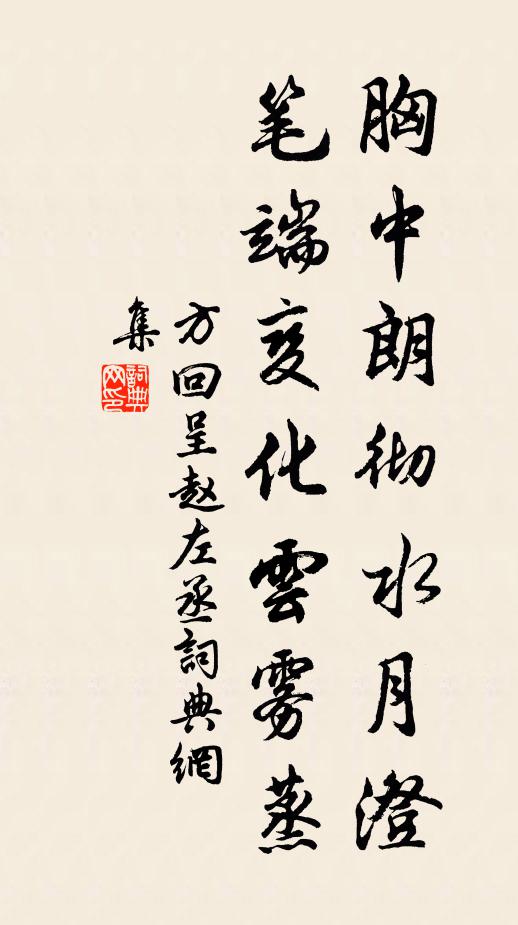 胸中朗彻水月澄
笔端变化雲雾蒸
方回呈赵左丞詞典網
集
詞典网印